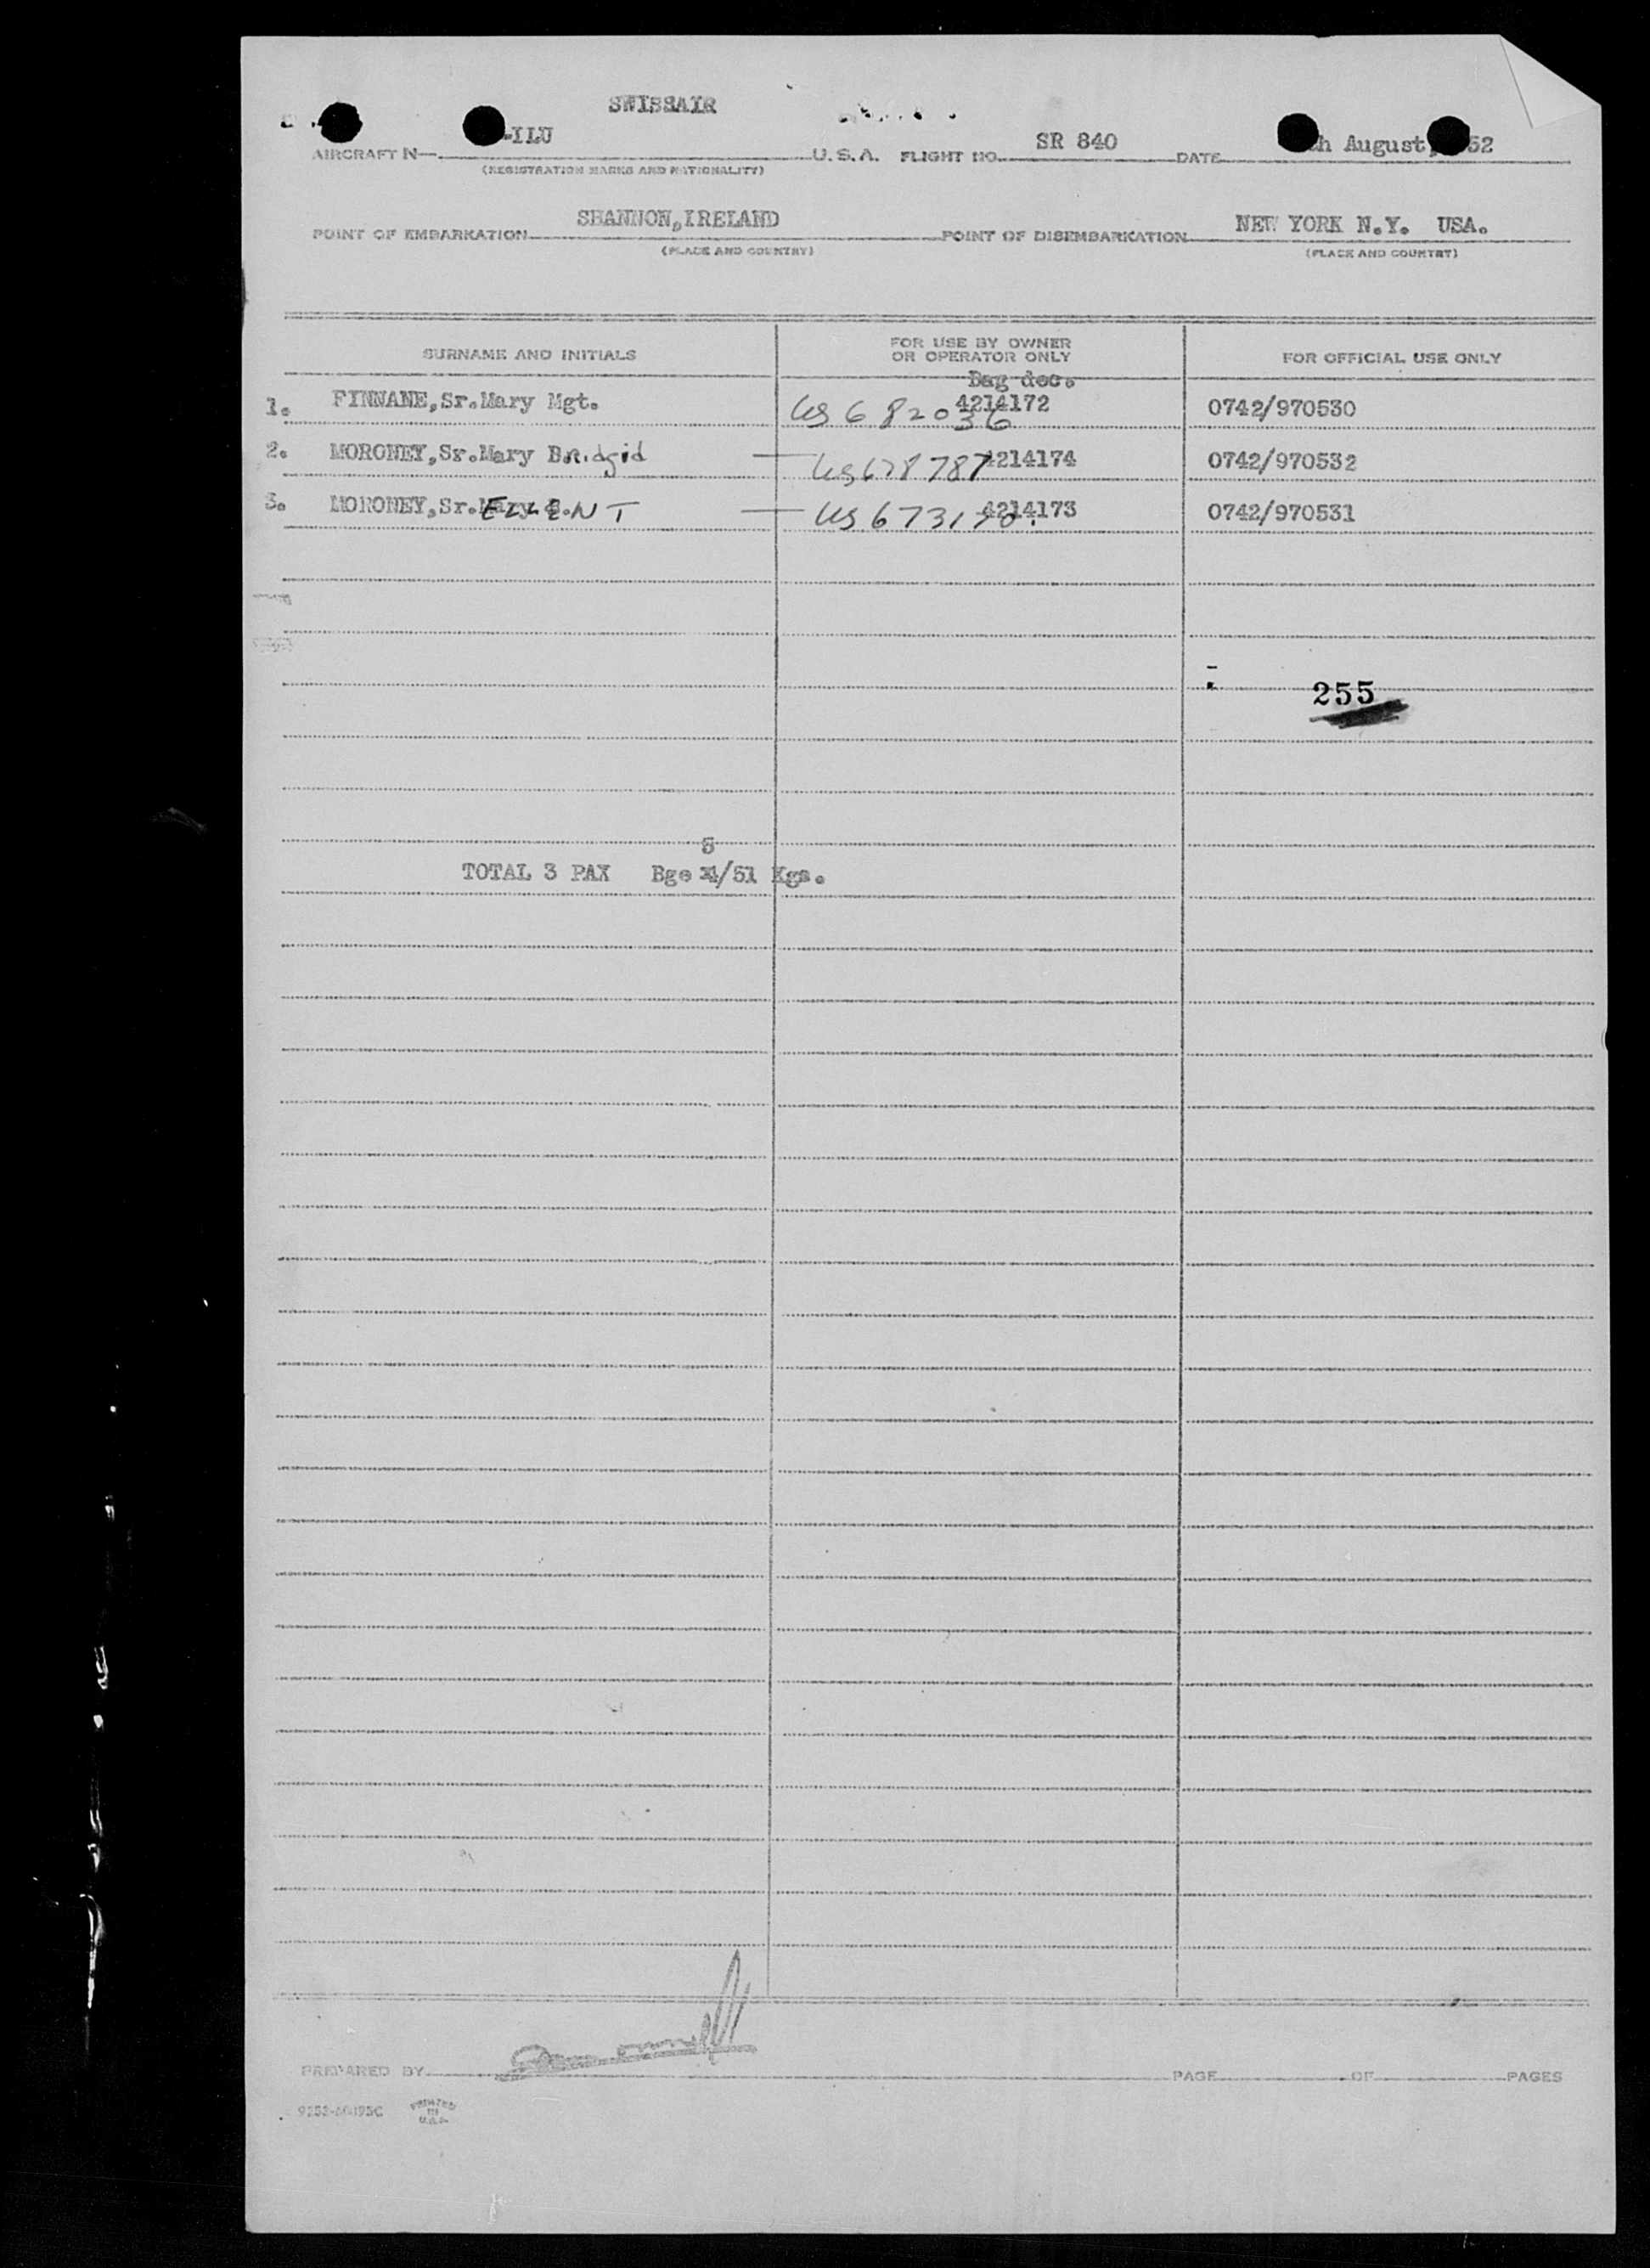 SWISSAIR
-ILU
AIRCRAFT N U.S.A. FLIGHT NO. SR 840 DATE h August, 52
(REGISTRATION MARKS AND NATIONALITY)
POINT OF EMBARKATION SHANNON, IRELAND POINT OF DISEMBARKATION NEW YORK N.Y. USA.
(PLACE AND COUNTRY) (PLACE AND COUNTRY)
SURNAME AND INITIALS FOR USE BY OWNER OR OPERATOR ONLY FOR OFFICIAL USE ONLY
Bag dec.
1. FINNANE, Sr. Mary Mgt. US 682036 4214172 0742/970530
2. MORONEY, Sr. Mary Bridgid US 678787 4214174 0742/970532
3. MORONEY, Sr. ELLEN T US 4214173 0742/970531
255
5
TOTAL 3 PAX Bge /51 Kgs.
PREPARED BY PAGE OF PAGES
PRINTED
IN
U.S.A.